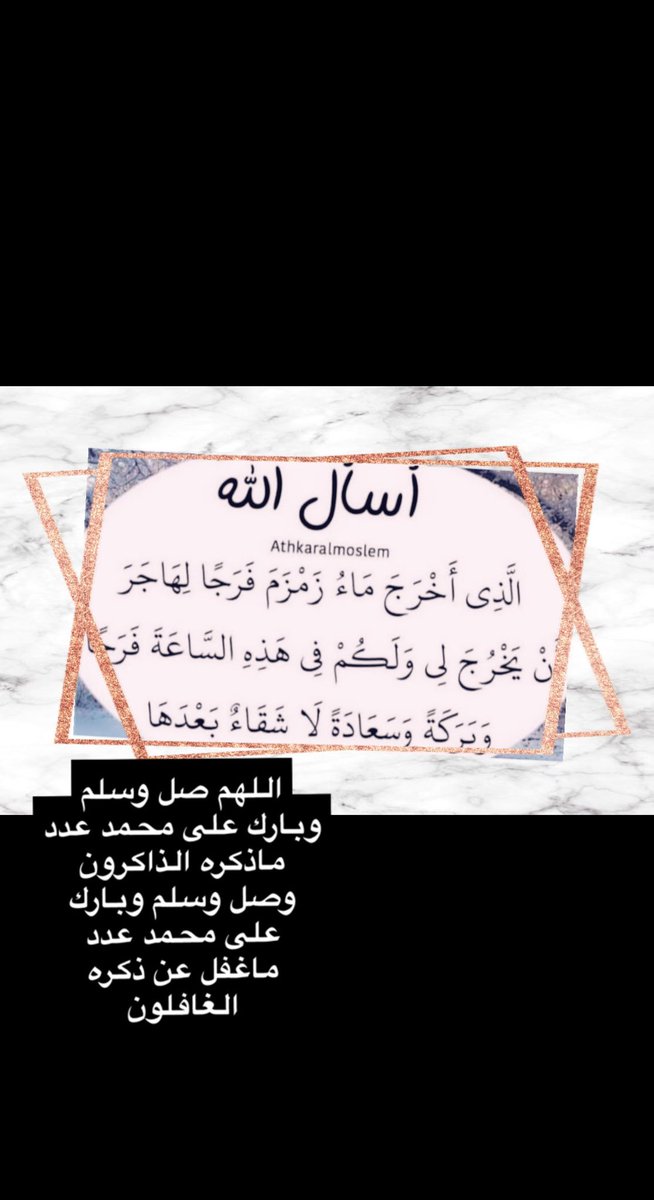 أسأل الله
Athkaralmoslem
الَّذِى أَخْرَجَ مَاءُ زَمْزَمَ فَرَجًا لِهَاجَرَ
أَنْ يَخْرُجَ لِى وَلَكُمْ فِى هَذِهِ السَّاعَةَ فَرَجًا
وَبَرَكَةً وَسَعَادَةً لَا شَقَاءٌ بَعْدَهَا
اللهم صل وسلم
وبارك على محمد عدد
ماذكره الذاكرون
وصل وسلم وبارك
على محمد عدد
ماغفل عن ذكره
الغافلون